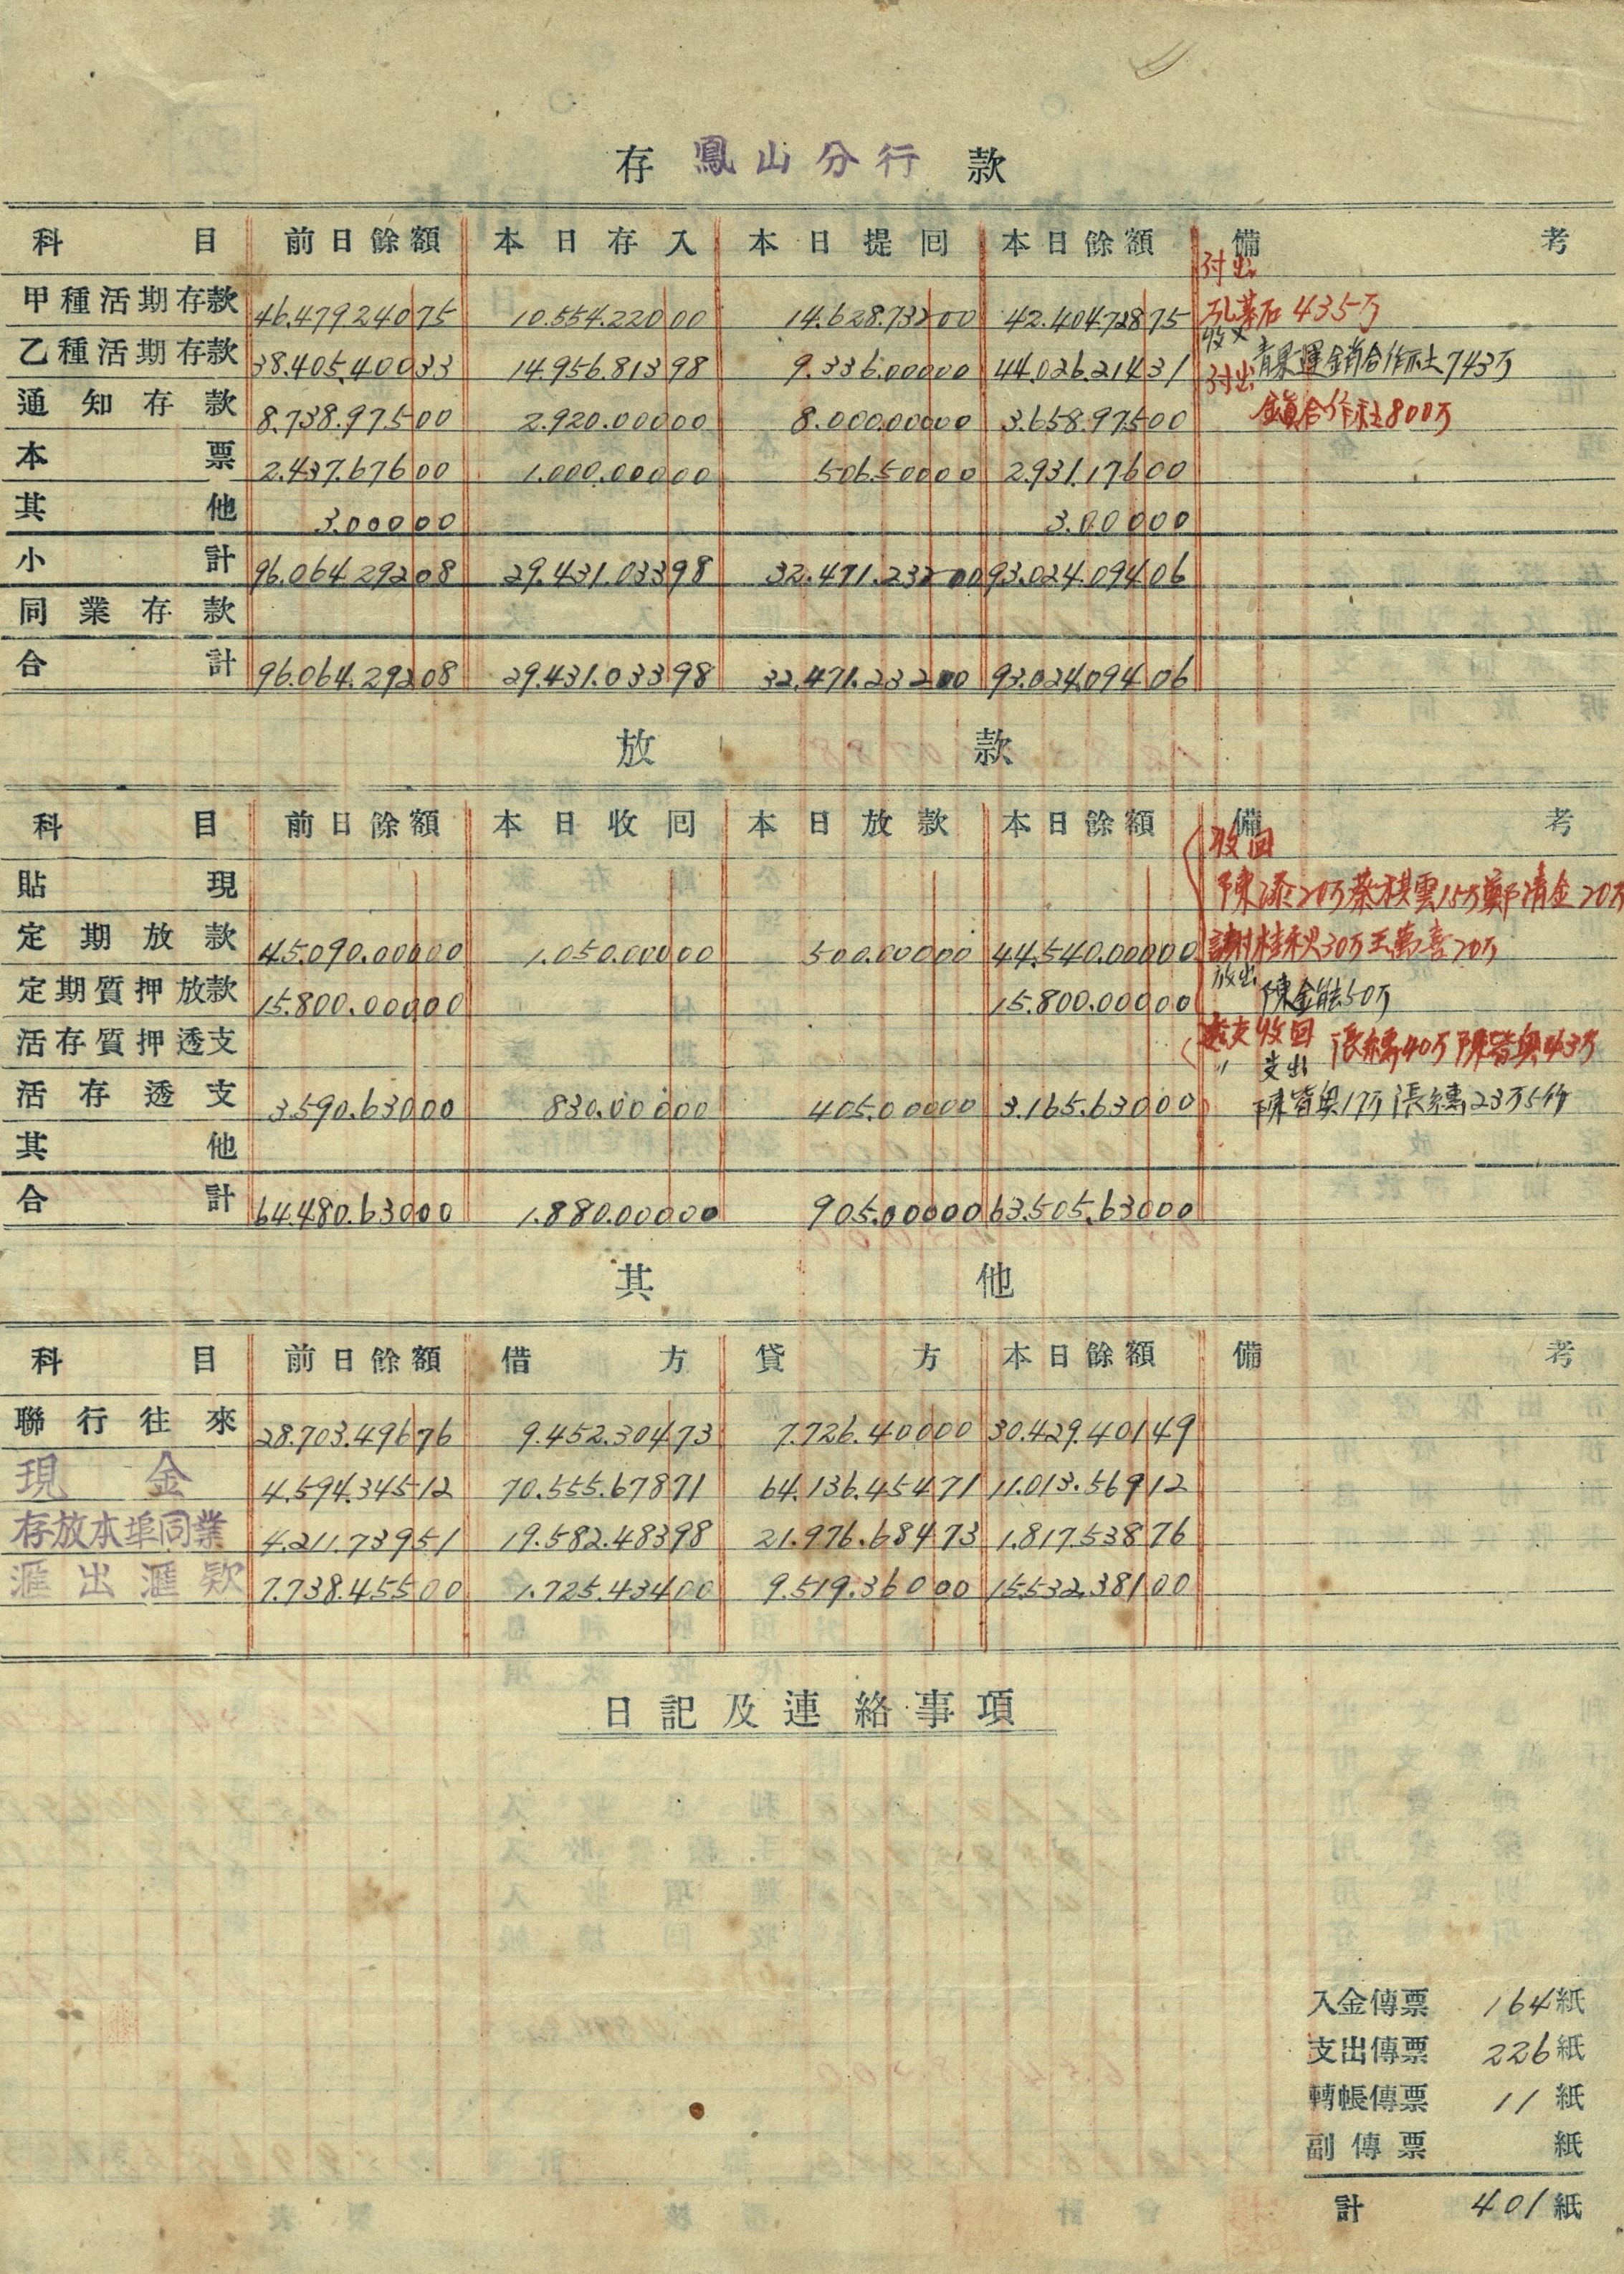 存 鳳山分行 款
科目 前日餘額 本日存入 本日提回 本日餘額 備考
付出
甲種活期存款 46.479.240 75 10.554.220 00 14.628.732 00 42.404.728 75 435万
收入
乙種活期存款 38.405.400 33 14.956.813 98 9.336.000 00 44.026.214 31 青果運銷合作社743万
付出
通知存款 8.738.975 00 2.920.000 00 8.000.000 00 3.658.975 00 鎮合作社800万
本票 2.437.676 00 1.000.000 00 506.500 00 2.931.176 00
其他 3.000 00 3.000 00
小計 96.064.292 08 29.431.033 98 32.471.232 00 93.024.094 06
同業存款
合計 96.064.292 08 29.431.033 98 32.471.232 00 93.024.094 06
放款
科目 前日餘額 本日收回 本日放款 本日餘額 備考
收回
貼現 陳添20万蔡棋雲15万鄭清金20万
定期放款 45.090.000 00 1.050.000 00 500.000 00 44.540.000 00 謝桂秋30万王萬喜20万
放出
定期質押放款 15.800.000 00 15.800.000 00 陳金能50万
活存質押透支 透支收回 張 40万陳皆興43万
〃 支出
活存透支 3.590.630 00 830.000 00 405.000 00 3.165.630 00 陳皆興17万張 23万5仟
其他
合計 64.480.630 00 1.880.000 00 905.000 00 63.505.630 00
其他
科目 前日餘額 借方 貸方 本日餘額 備考
聯行往來 28.703.496 76 9.452.304 73 7.726.400 00 30.429.401 49
現金 4.594.345 12 70.555.678 71 64.136.454 71 11.013.569 12
存放本埠同業 4.211.739 51 19.582.483 98 21.976.684 73 1.817.538 76
滙出滙欵 7.738.455 00 1.725.434 00 9.519.360 00 15.532.381 00
日記及連絡事項
入金傳票 164紙
支出傳票 226紙
轉帳傳票 11紙
副傳票 紙
計 401紙